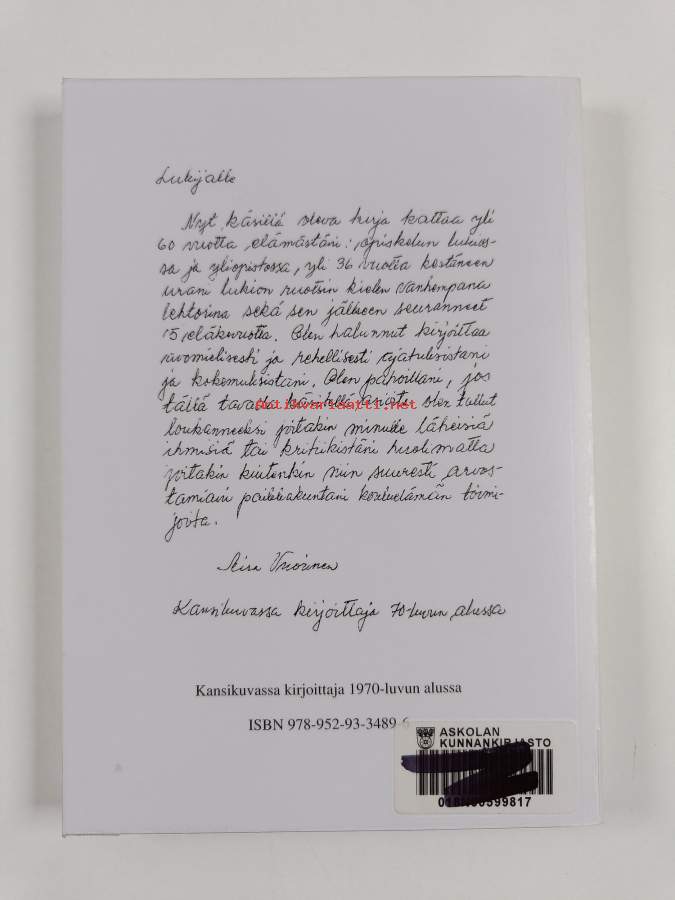 Lukijalle
Nyt käsillä oleva kirja kattaa yli
60 vuotta elämästäni: opiskelun lukios-
sa ja yliopistossa, yli 36 vuotta kestäneen
urani lukion ruotsin kielen vanhempana
lehtorina sekä sen jälkeen seuranneet
15 eläkevuotta. Olen halunnut kirjoittaa
avomielisesti ja rehellisesti ajatuksistani
ja kokemuksistani. Olen pahoillani, jos
tällä tavalla käsitellä asioita olen tullut
loukanneeksi joitakin minulle läheisiä
ihmisiä tai kritiikistäni huolimatta
joitakin kuitenkin niin suuresti arvos-
tamiani paikkakuntani kouluelämän toimi-
joita.
Antikvariaatti.net
Vuorinen
Kansikuvassa kirjoittaja 70-luvun alussa
Kansikuvassa kirjoittaja 1970-luvun alussa
ISBN 978-952-93-3489-6
ASKOLAN
KUNNANKIRJASTO
599817